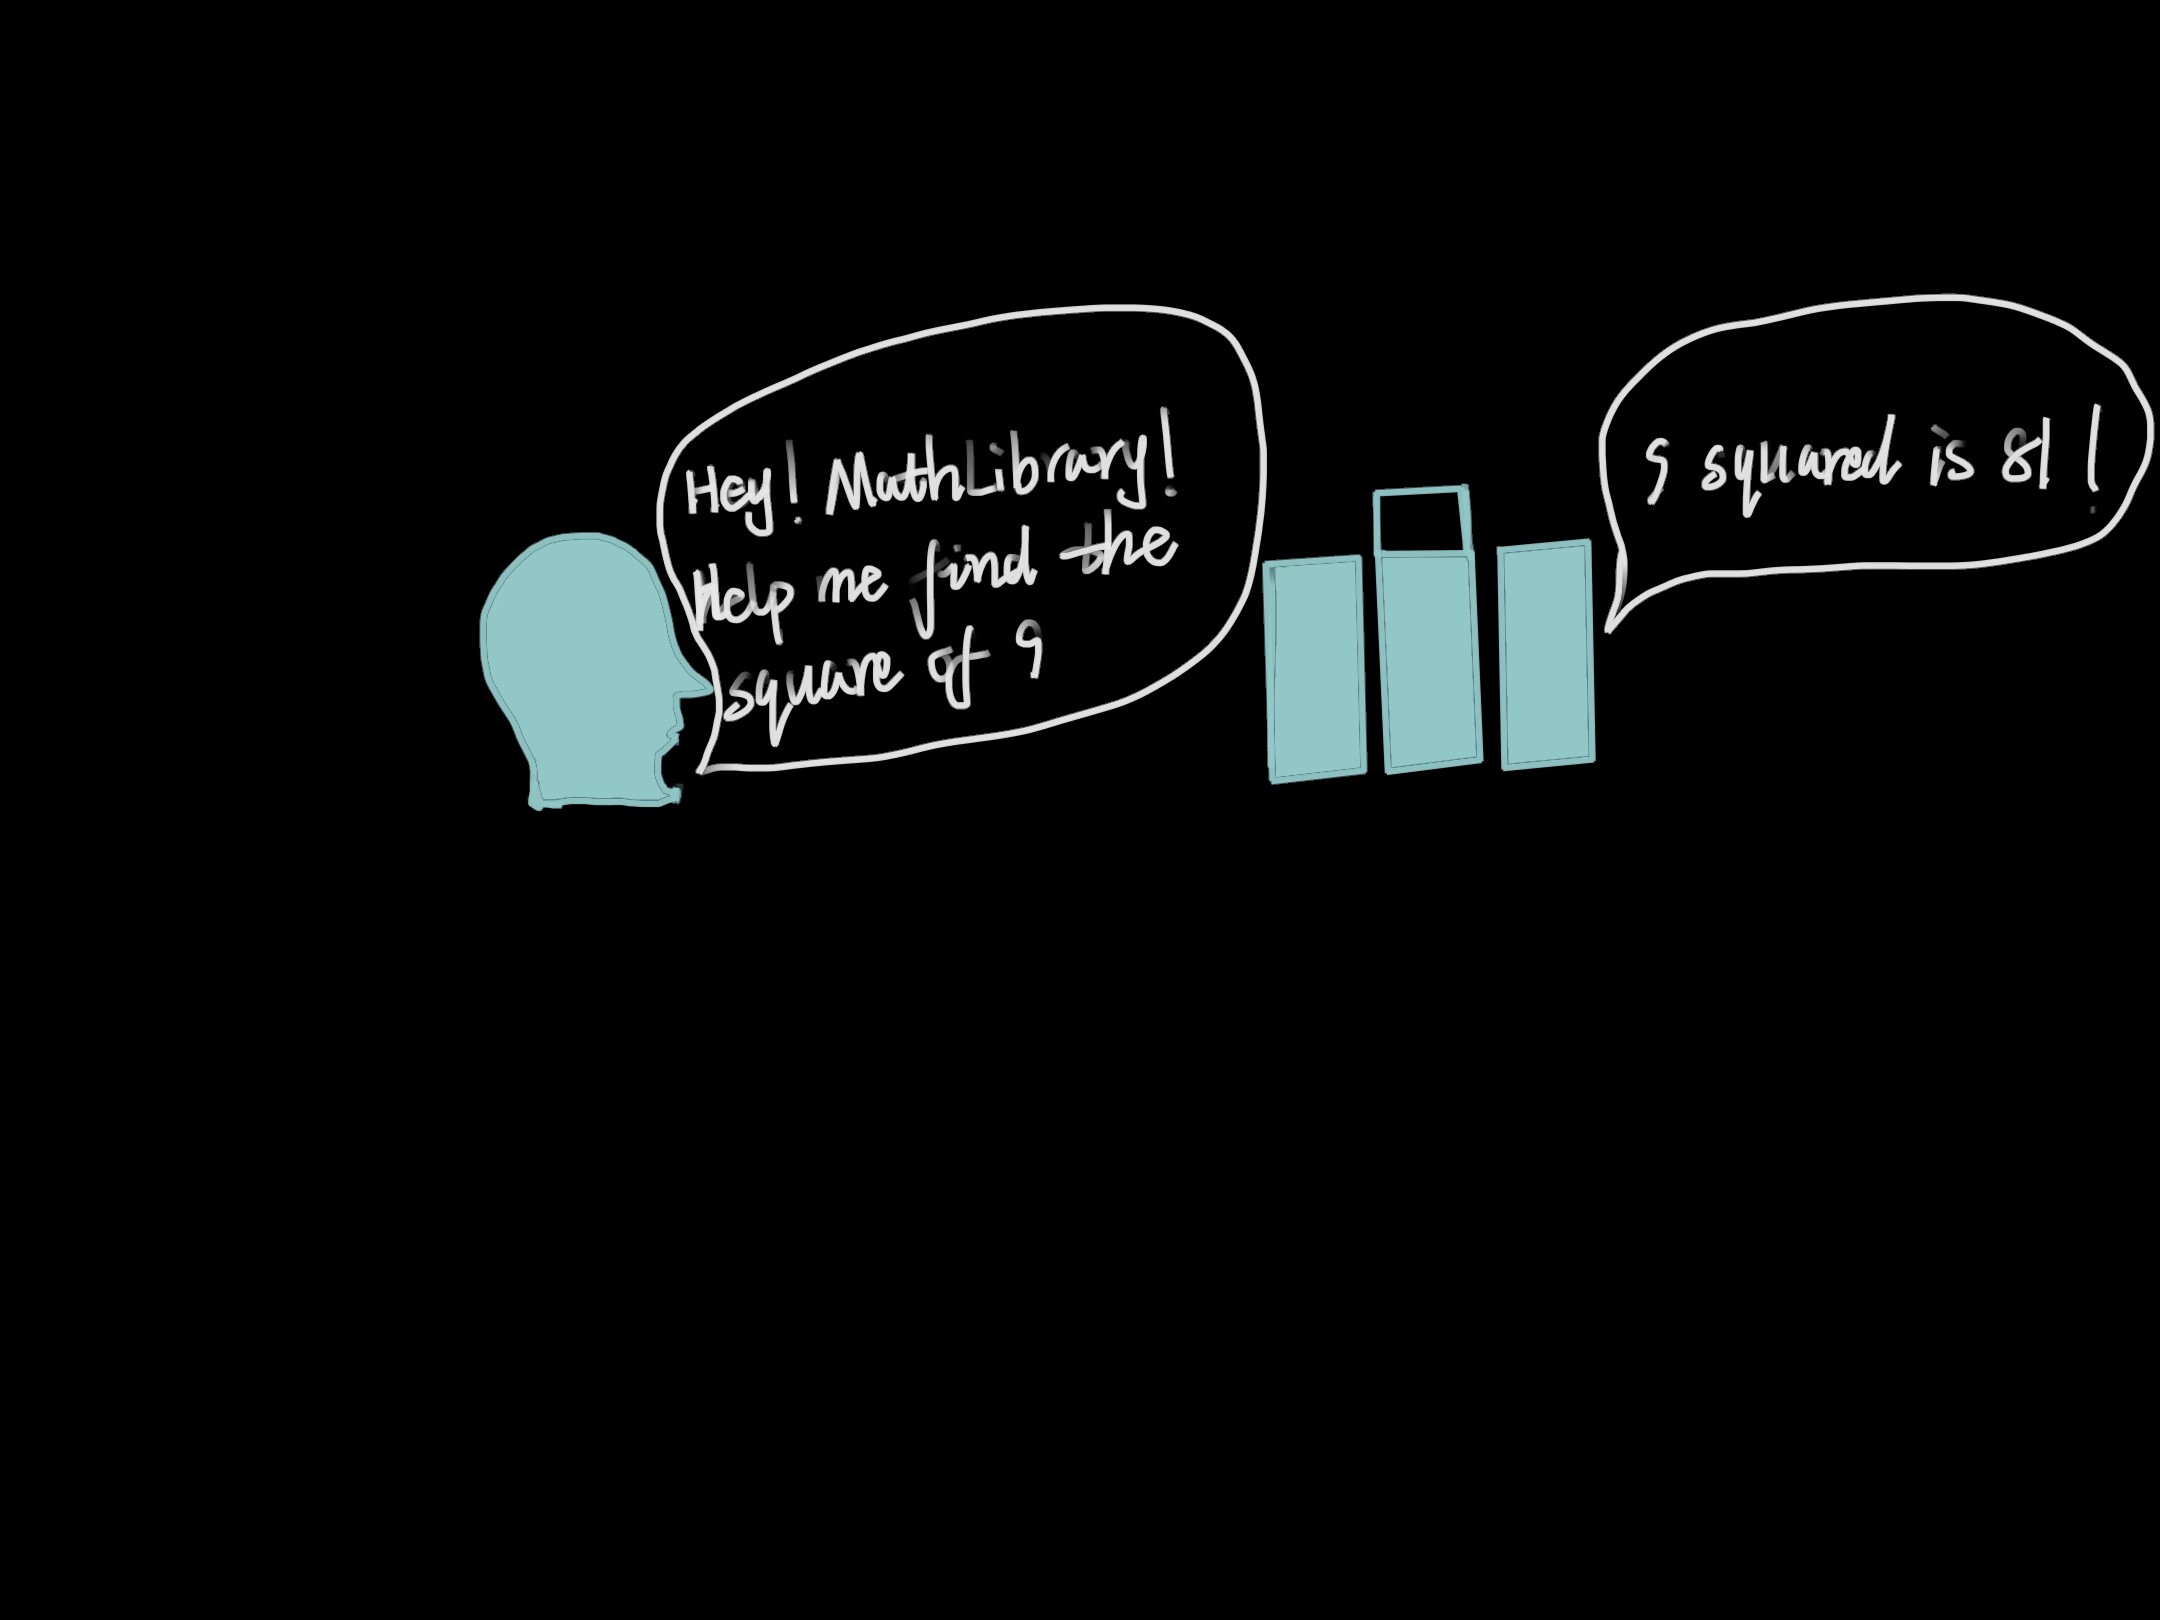 Hey! MathLibrary!
Help me find the
square of 9
9 squared is 81!